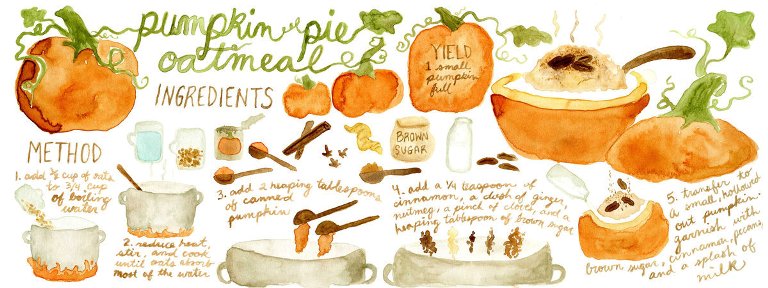 pumpkin pie
oatmeal
INGREDIENTS
YIELD
1 small
pumpkin
full
BROWN
SUGAR
METHOD
1. add ½ cup of oats
to 3/4 cup
of boiling
water
2. reduce heat,
stir, and cook
until oats absorb
most of the water
3. add 2 heaping tablespoons
of canned
pumpkin
4. add a ¼ teaspoon of
cinnamon, a dash of ginger,
nutmeg, a pinch of clove, and a
heaping tablespoon of brown sugar
5. transfer to
a small, hollowed
out pumpkin.
garnish with
brown sugar, cinnamon, pecans,
and a splash of
milk